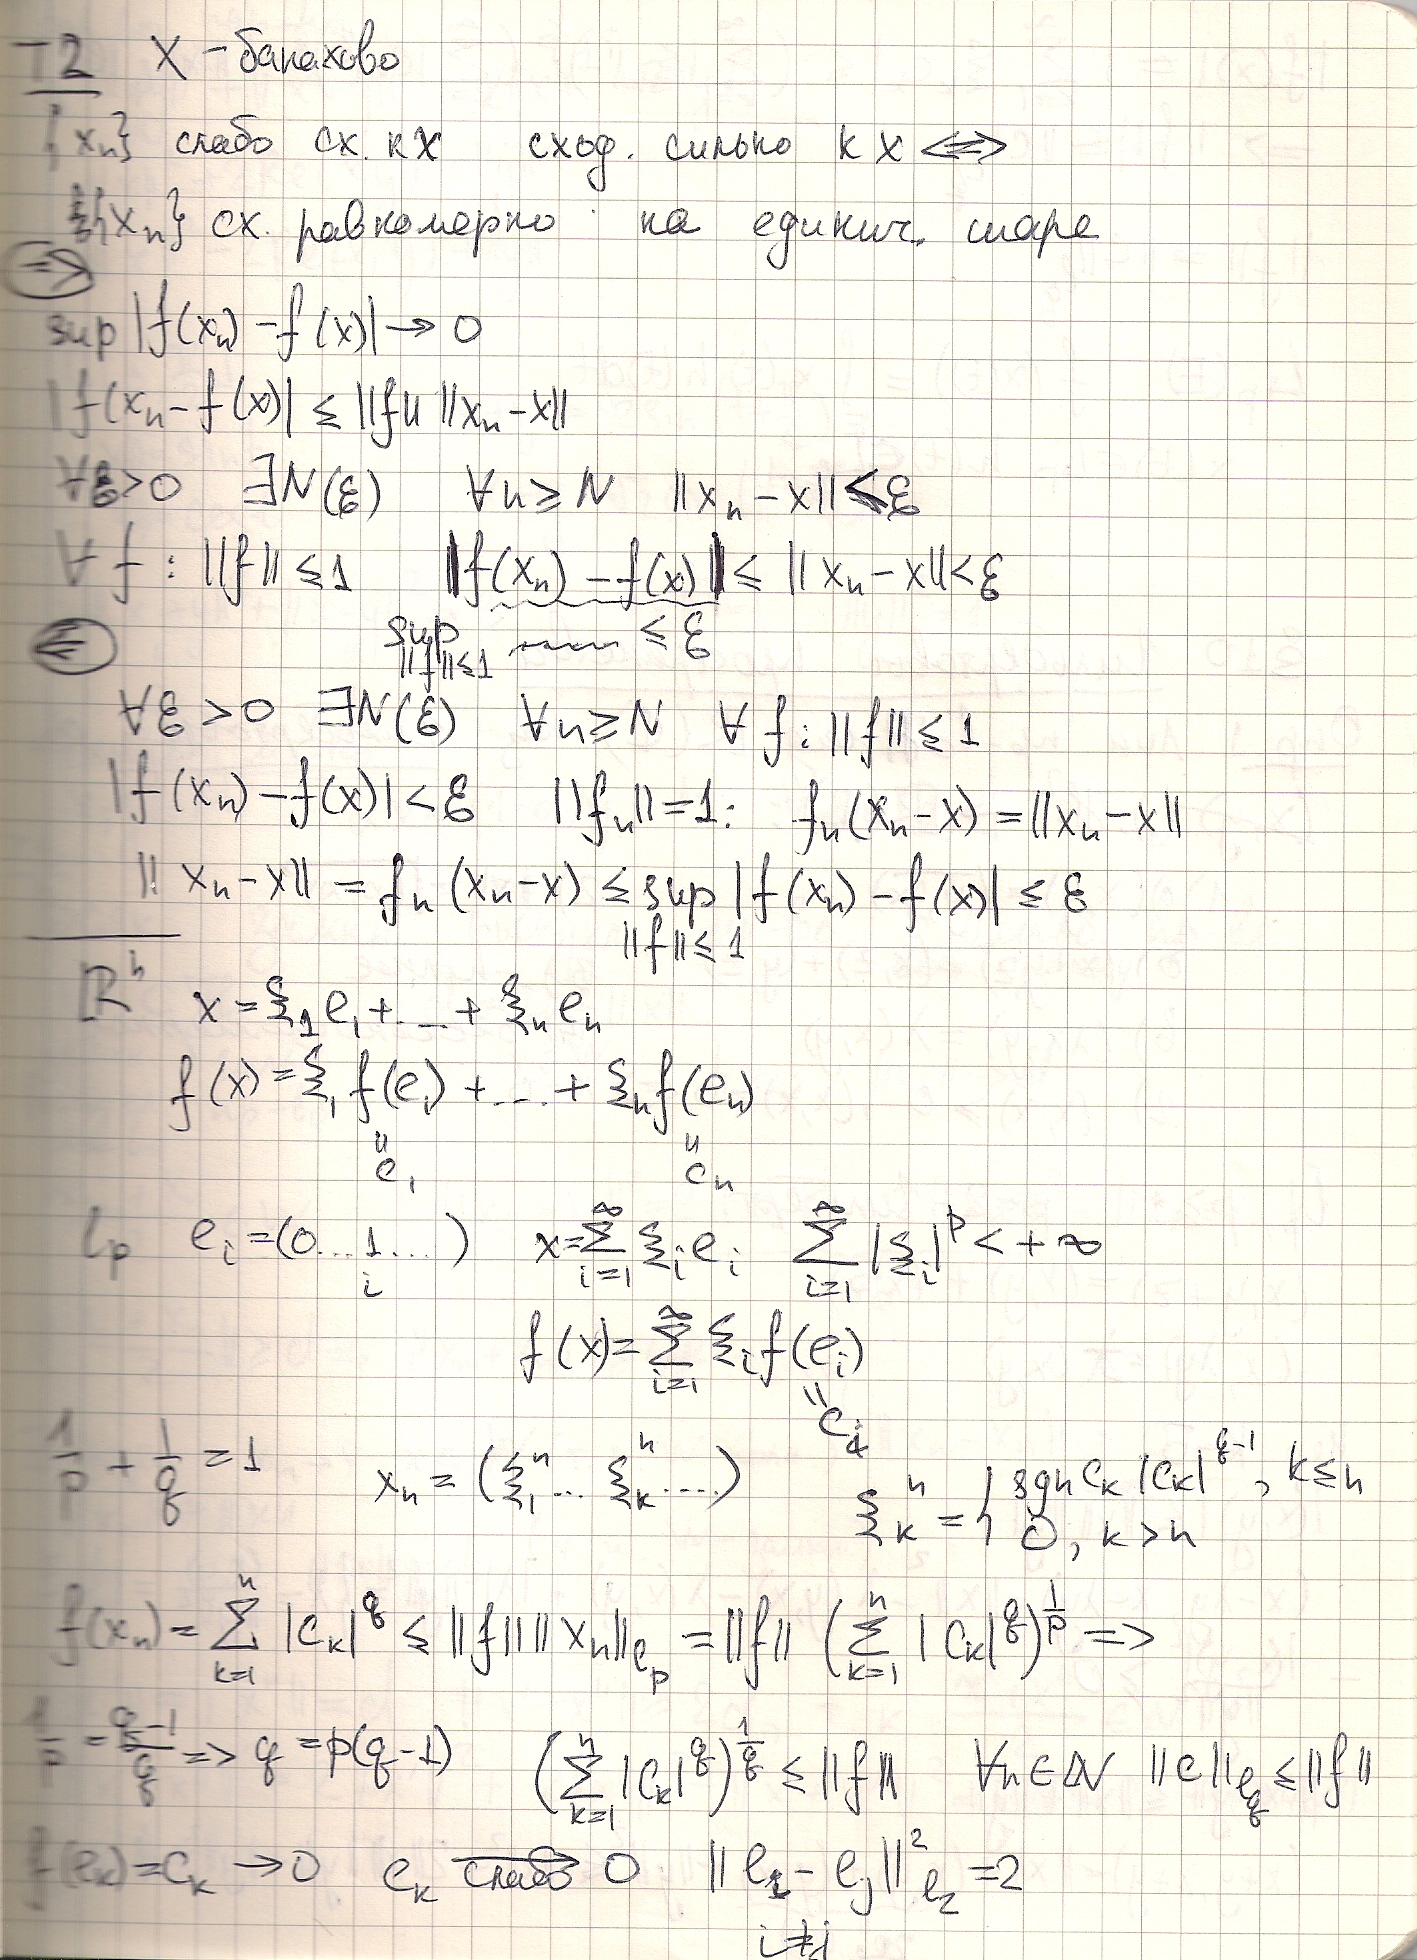 T2 X – банахово
{xₙ} слабо сх. к x сход. сильно к x <=>
{xₙ} сх. равномерно на единич. шаре
=>
sup |f(xₙ) – f(x)| → 0
|f(xₙ – f(x)| ≤ ||f|| ||xₙ – x||
∀ε>0 ∃N(ε) ∀n ≥ N ||xₙ – x|| < ε
∀ f : ||f|| ≤ 1 |f(xₙ) – f(x)| ≤ ||xₙ – x|| < ε
sup_{||f||≤1} ...... ≤ ε
<=
∀ε > 0 ∃N(ε) ∀n ≥ N ∀ f : ||f|| ≤ 1
|f(xₙ) – f(x)| < ε ||fₙ|| = 1: fₙ(xₙ – x) = ||xₙ – x||
||xₙ – x|| = fₙ(xₙ – x) ≤ sup_{||f||≤1} |f(xₙ) – f(x)| ≤ ε
ℝⁿ x = ξ₁e₁ + ... + ξₙeₙ
f(x) = ξ₁f(e₁) + ... + ξₙf(eₙ)
" "
c₁ cₙ
lₚ eᵢ = (0...1....) x = ∑_{i=1}^{∞} ξᵢeᵢ ∑_{i=1}^{∞} |ξᵢ|^p < +∞
i
f(x) = ∑_{i=1}^{∞} ξᵢf(eᵢ)
"
cᵢ
1/p + 1/q = 1 xₙ = (ξ₁ⁿ ... ξₖⁿ ....) ξₖⁿ = { sgn cₖ |cₖ|^{q-1}, k ≤ n
0, k > n
f(xₙ) = ∑_{k=1}^{n} |cₖ|^q ≤ ||f|| ||xₙ||_{lₚ} = ||f|| (∑_{k=1}^{n} |cₖ|^q)^{1/p} =>
1/p = (q-1)/q => q = p(q-1) (∑_{k=1}^{n} |cₖ|^q)^{1/q} ≤ ||f|| ∀n ∈ ℕ ||c||_{l_q} ≤ ||f||
f(eₖ) = cₖ → 0 eₖ →(слабо) 0 ||eᵢ – eⱼ||²_{l₂} = 2
i ≠ j